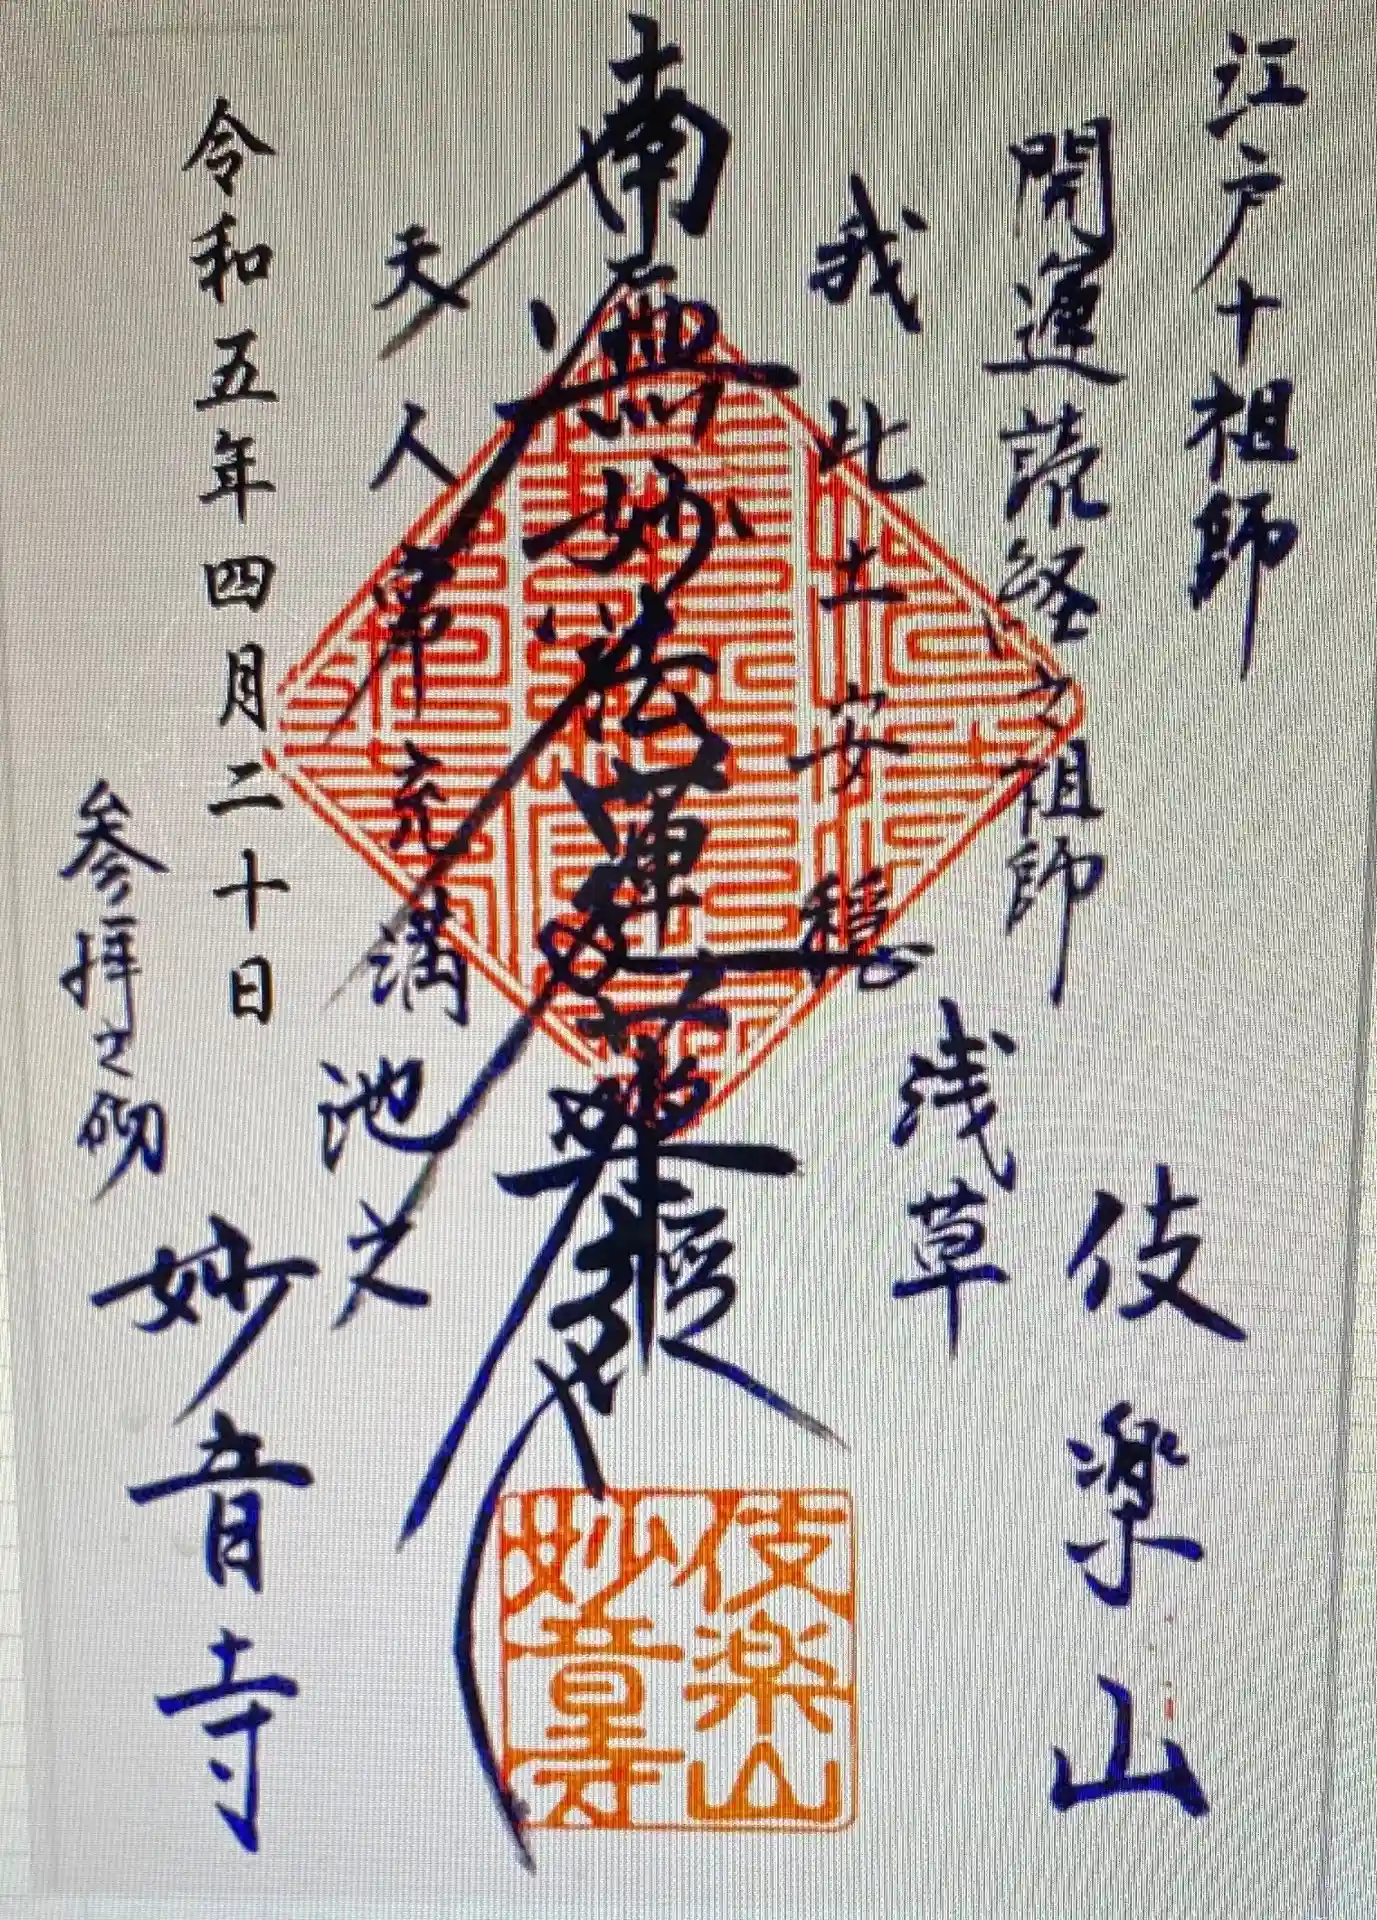 江戸十祖師
開運読経之祖師
伎楽山
浅草
我此土安穏
南無妙法蓮華経
天人常充満
池之
令和五年四月二十日
参拝之砌
妙音寺
伎楽山
妙音寺